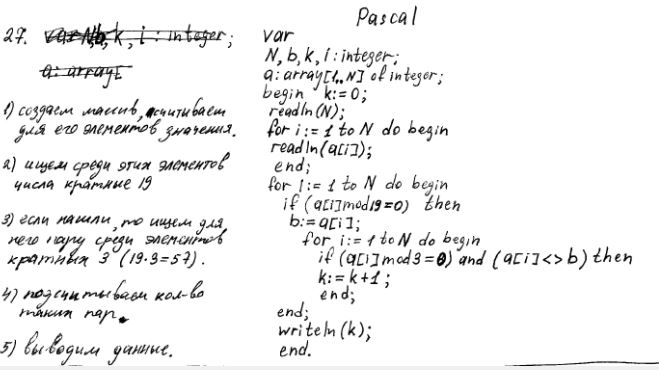 Pascal
27. var N,b, k, i : integer;
a: array[
1) создаем массив, считываем
для его элементов значения.
2) ищем среди этих элементов
числа кратные 19
3) если нашли, то ищем для
него пару среди элементов
кратных 3 (19·3=57).
4) подсчитываем кол-во
таких пар.
5) выводим данные.
var
N, b, k, i : integer;
a: array[1..N] of integer;
begin k:=0;
readln(N);
for i:= 1 to N do begin
readln(a[i]);
end;
for i:= 1 to N do begin
if (a[i]mod19=0) then
b:=a[i];
for i:=1 to N do begin
if (a[i]mod3=0) and (a[i]<>b) then
k:=k+1;
end;
end;
writeln(k);
end.